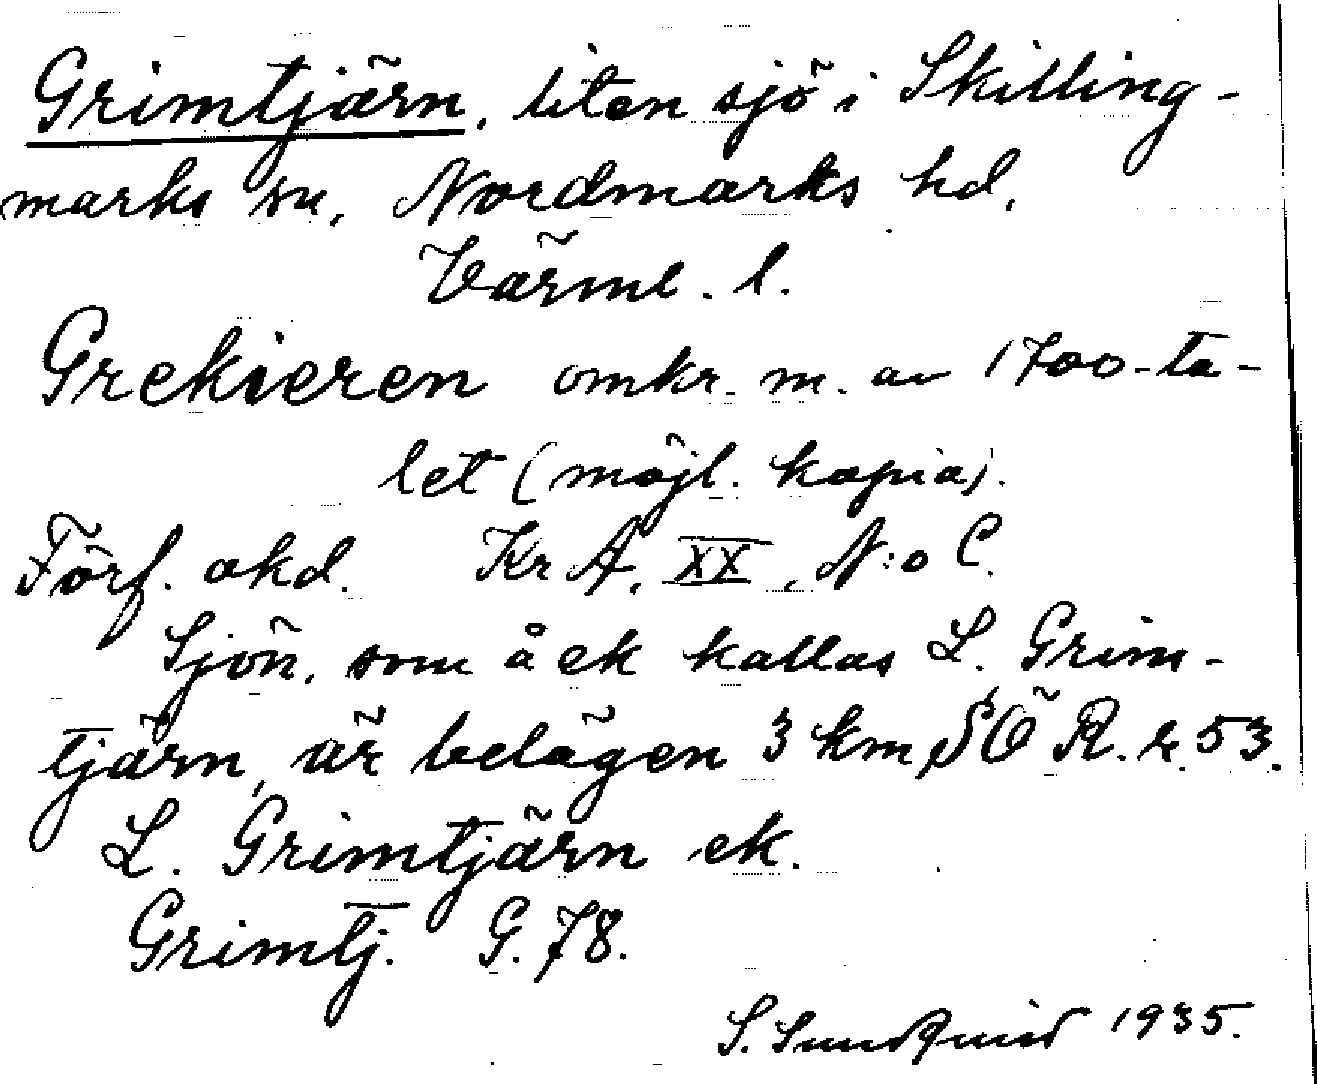 Grimtjärn, liten sjö i Skilling-
marks sn, Nordmarks hd,
Värml. l.
Grekieren omkr. m. av 1700-ta-
let (möjl. kopia).
Förf. okd. KrA, XX, N:o C.
Sjön, som å ek kallas L. Grim-
tjärn, är belägen 3 km SÖ R. r. 53.
L. Grimtjärn ek.
Grimtj. G. 78.
S. Sundqvist 1935.